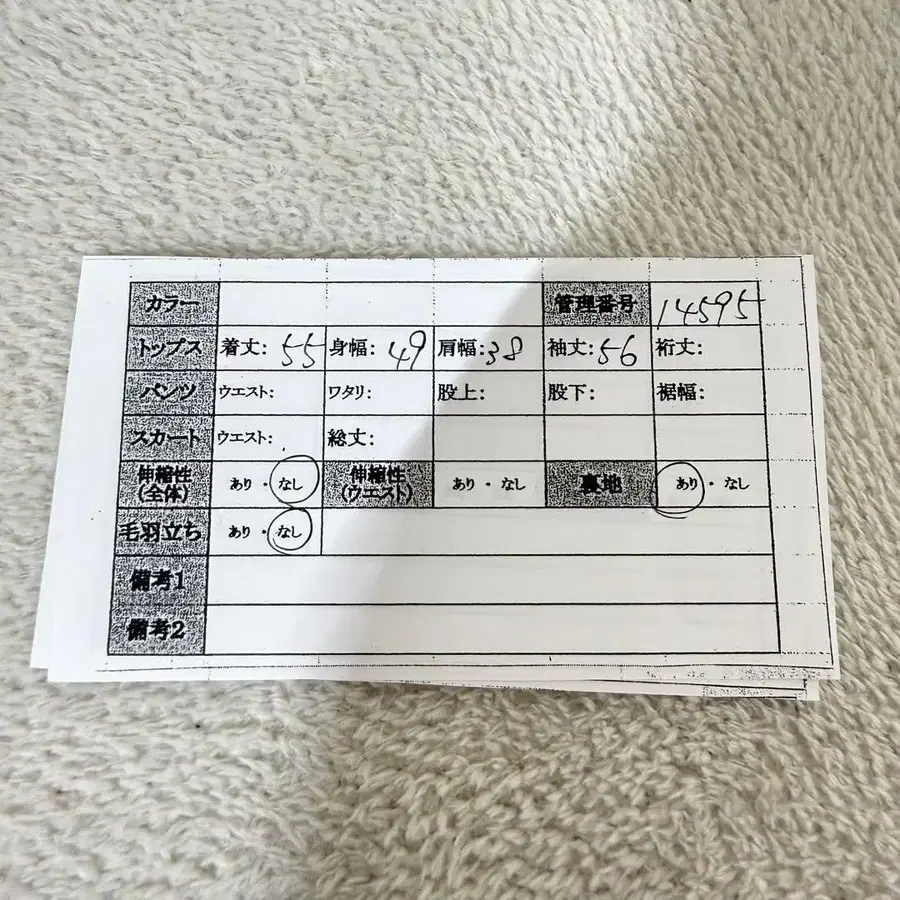 カラー 管理番号 14595
トップス 着丈: 55 身幅: 49 肩幅: 38 袖丈: 56 裄丈:
パンツ ウエスト: ワタリ: 股上: 股下: 裾幅:
スカート ウエスト: 総丈:
伸縮性 (全体) あり・なし 伸縮性 (ウエスト) あり・なし 裏地 あり・なし
毛羽立ち あり・なし
備考1
備考2